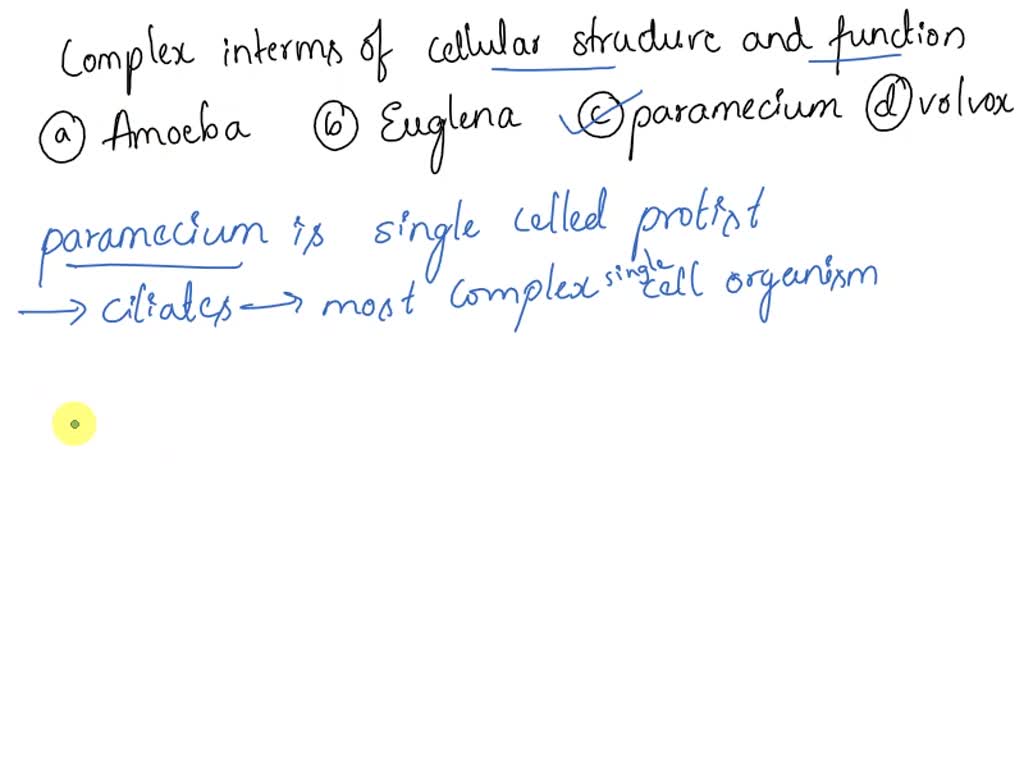 Complex interms of cellular strudure and function
ⓐ Amoeba ⓑ Euglena ⓒ paramecium ⓓ volvox
paramecium is single celled protist
→ ciliates → most complex single cell organism